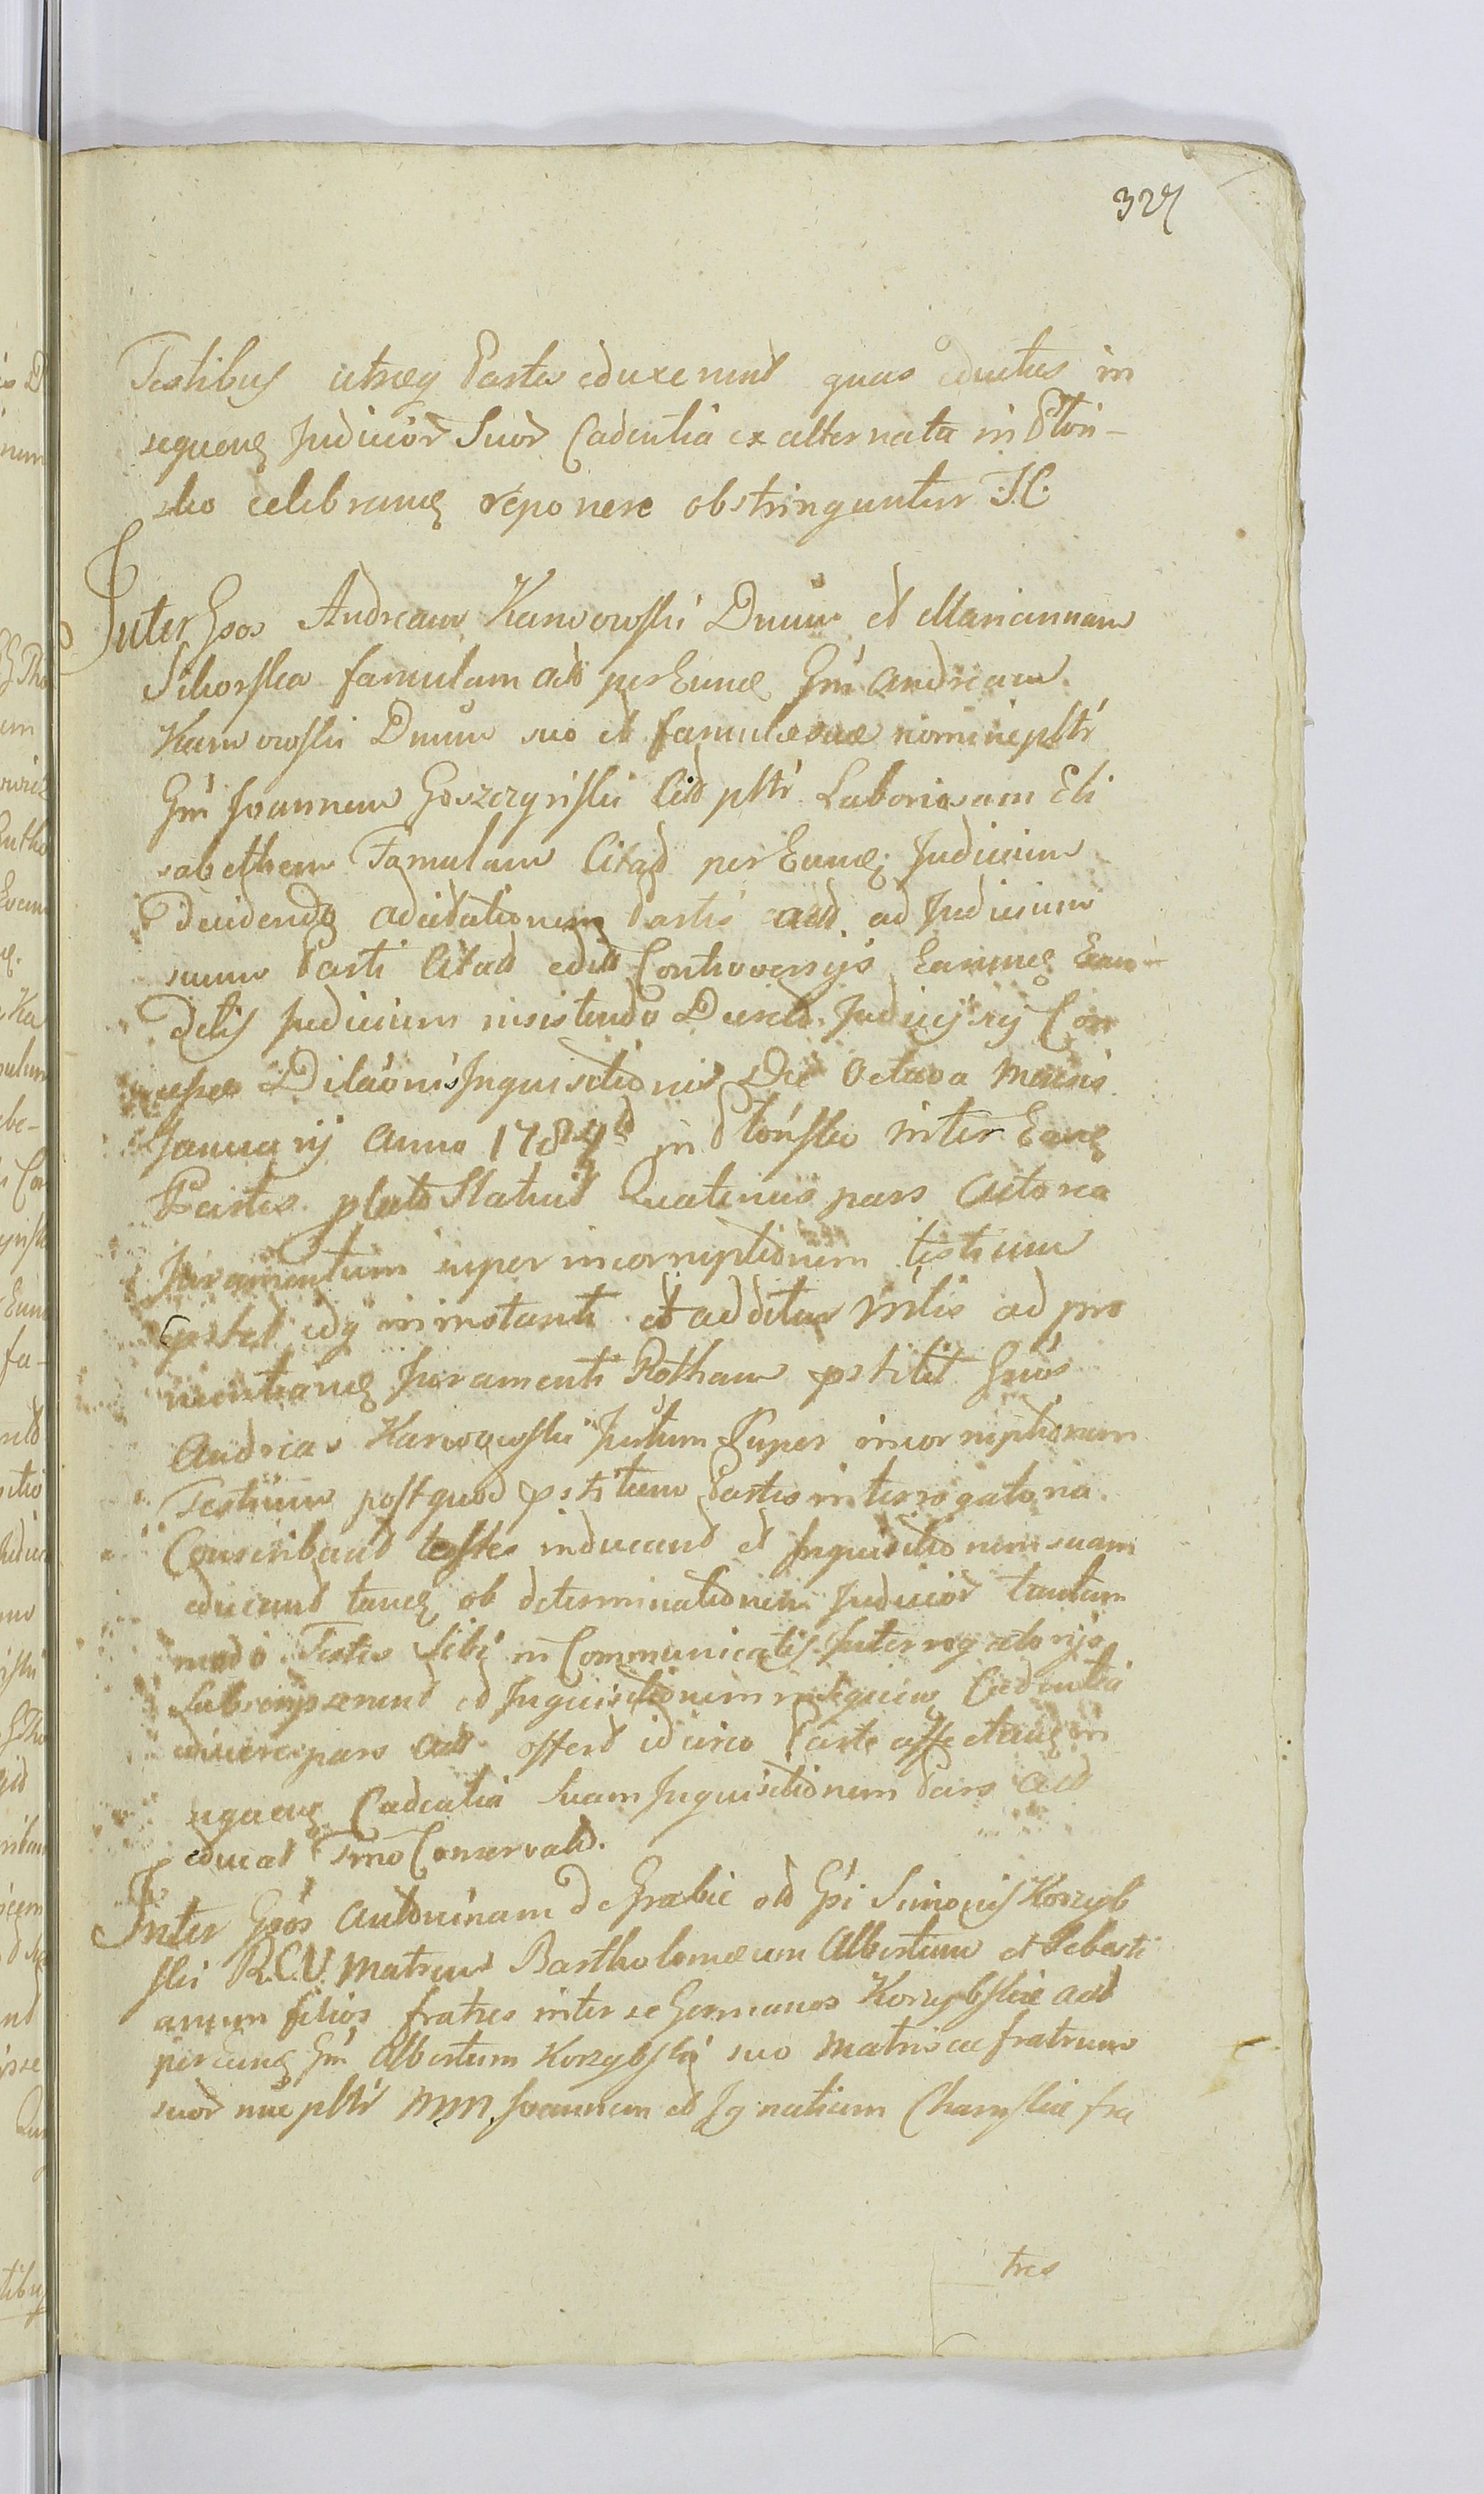 327
Testibus utræq Partes eduxerunt quas eductas in
sequenq Judicior Suor Cadentia ex alternata in Płoń-
sko celebranq reponere obstringuntur T.C.
Inter Gsos Andream Karwowski Dnum et Mariannam
Sikorska famulam act per Eunq Gm Andream
Karwowski Dnum suo et famulæ suæ nomine pltr
Gm Joannem Goszczyński Cit pltr Laboriosam Eli
sabethem Famulam Citat per Eunq Judicium
Decidendo ad citationem Partis act ad Judicium
suum Parti Citat edit Controversijs Earunq Exau-
ditis Judicium insistendo Decreto Judicij sij Con
cessæ Dilaonis Inquisitionis Die Octava Mensis
Januarij anno 1787 in Płońsko inter Easq
Partes lato Statuit Quatenus pars actorea
Juramentum super incorruptionem testium
pstet idq in instanti et additus Mtlis ad pro
nuntianq Juramenti Rotham pstitit Gnos
Andreas Karwowski Jurtum Super incorruptionem
Testium post quod pstitum Partes interrogatoria
Conscribant testes inducant et Inquisitionem suam
educant tanq ob determinationem Judicior tantum
modo Testes Sibi in Communicatis Interrogatorijs
Subscripserunt et Inquisitionem in sequenq Cadentia
educere pars act offert idcirco Parte affectanq in
sequenq Cadentia Suam Inquisitionem Pars act
educat Tmo Conservato.
Inter Gsos Antoninam de Grabie old Gsi Simonis Korzyb
ski R.C.V. Matrem Bartholomæum Albertum et Sebasti
anum filios fratres inter se Germanos Korzybskie act
per Eunq Gm Albertum Korzybski suo Matris ac fratrum
suor nne pltr MM. Joannem et Ignatium Chamskie fra
tres